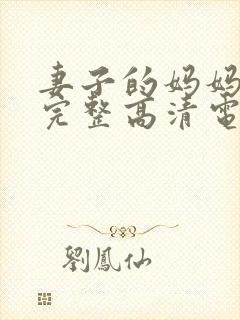 妻子的妈妈
完整高清電
劉鳳仙